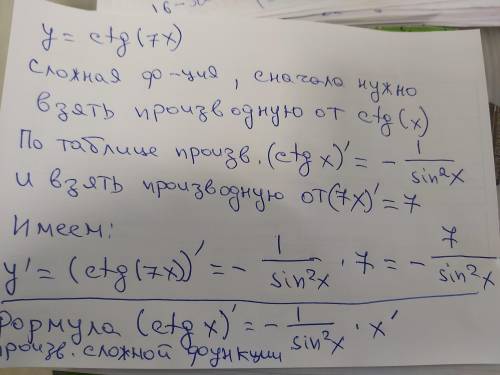 y = ctg(7x)
Сложная ф-ция, сначала нужно
взять производную от ctg(x)
По таблице произв. (ctg x)' = - 1/sin²x
и взять производную от (7x)' = 7
Имеем:
y' = (ctg(7x))' = - 1/sin²x · 7 = - 7/sin²x
Формула (ctg x)' = - 1/sin²x · x'
произв. сложной функции